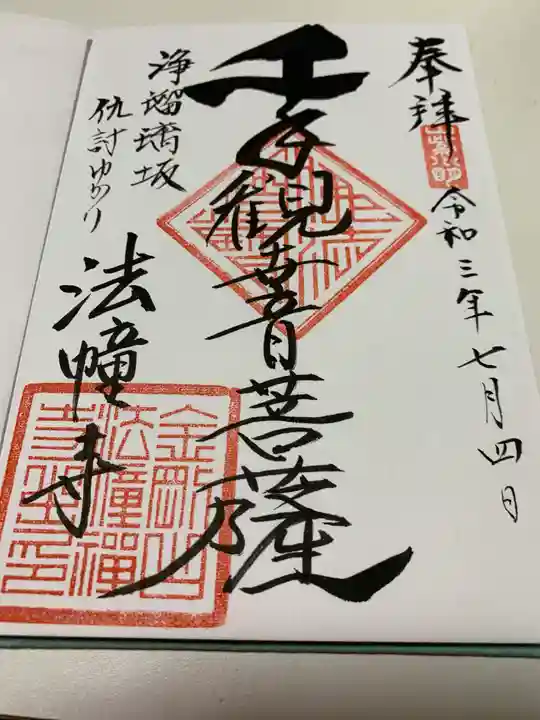 奉拝
令和三年七月四日
千手観世音菩薩
浄瑠璃坂
仇討ゆかり
法幢寺
金剛山
法幢禪
寺翌印